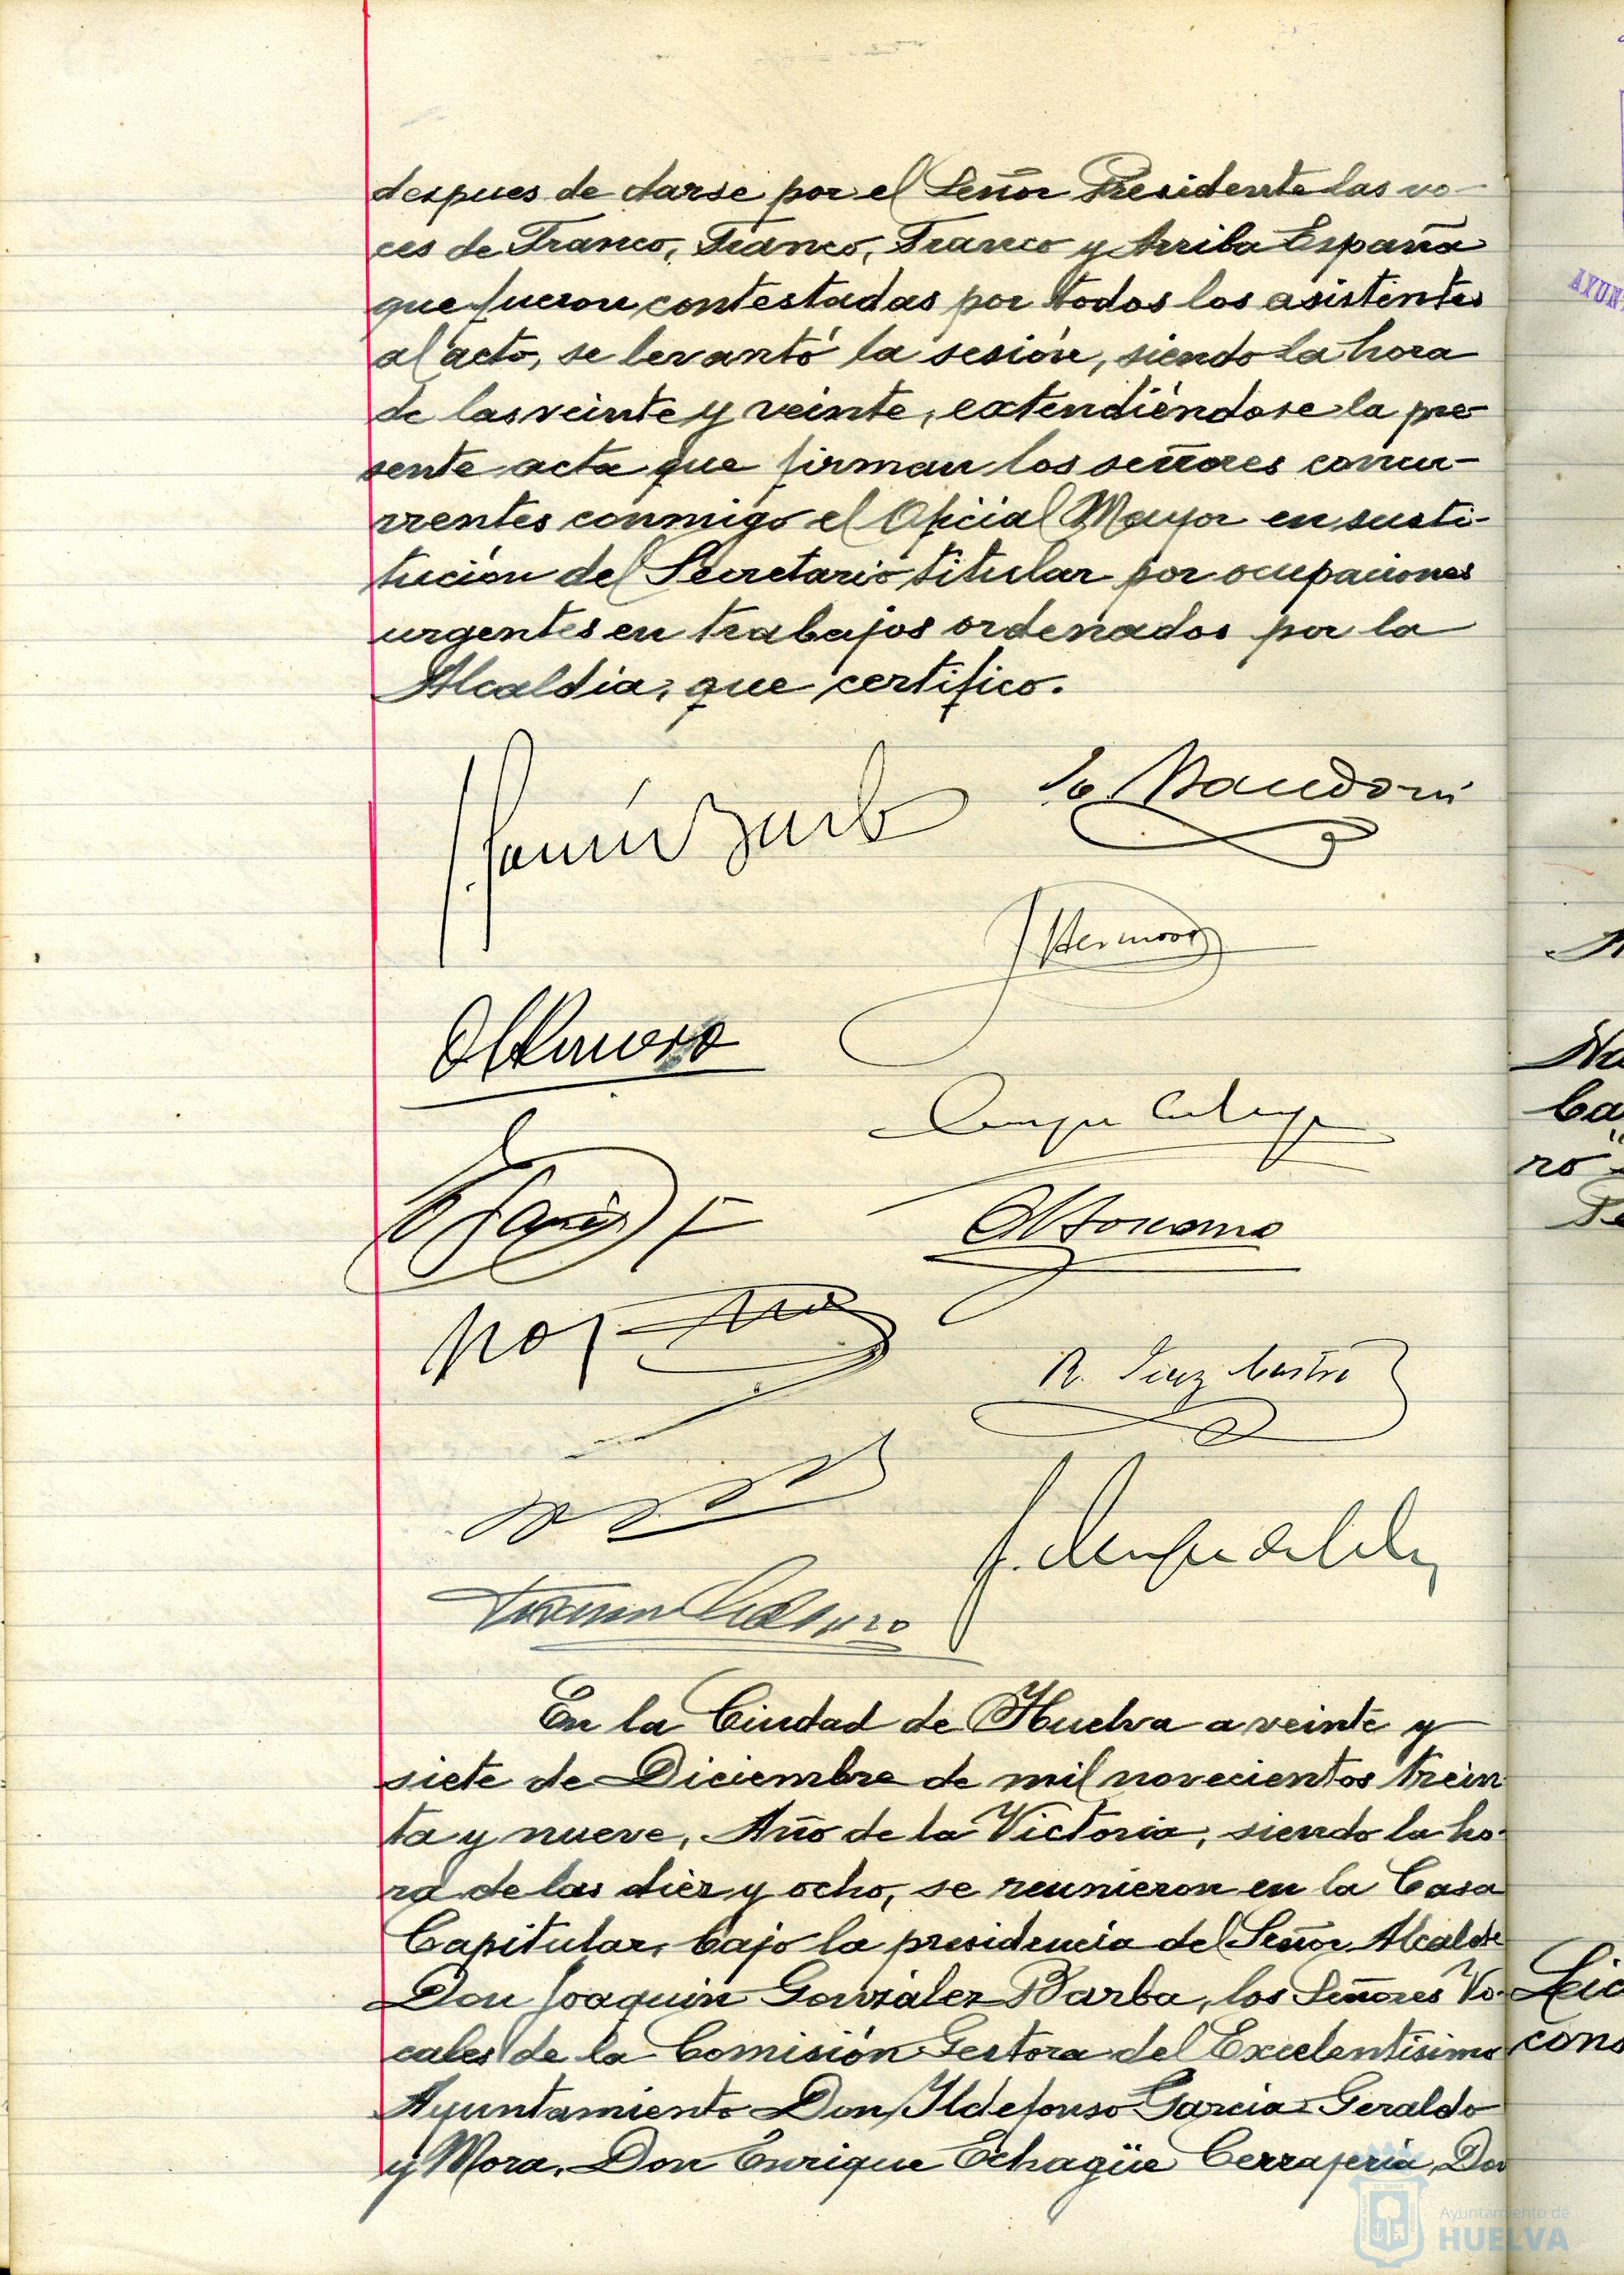 despues de darse por el Señor Presidente las vo-
ces de Franco, Franco, Franco y Arriba España
que fueron contestadas por todos los asistentes
al acto, se levantó la sesión, siendo la hora
de las veinte y veinte, extendiéndose la pre-
sente acta que firman los señores concu-
rrentes conmigo el Oficial Mayor en susti-
tución del Secretario titular por ocupaciones
urgentes en trabajos ordenados por la
Alcaldia, que certifico.
R. Diaz Castro
En la Ciudad de Huelva a veinte y
siete de Diciembre de mil novecientos trein
ta y nueve, Año de la Victoria, siendo la ho-
ra de las diez y ocho, se reunieron en la Casa
Capitular, bajo la presidencia del Señor Alcalde
Don Joaquin González Barba, los Señores Vo-
cales de la Comisión Gestora del Excelentisimo
Ayuntamiento Don Ildefonso Garcia-Geraldo
y Mora, Don Enrique Echagüe Cerrajeria, Don
Ayuntamiento de
HUELVA
AYUN
ro
cons